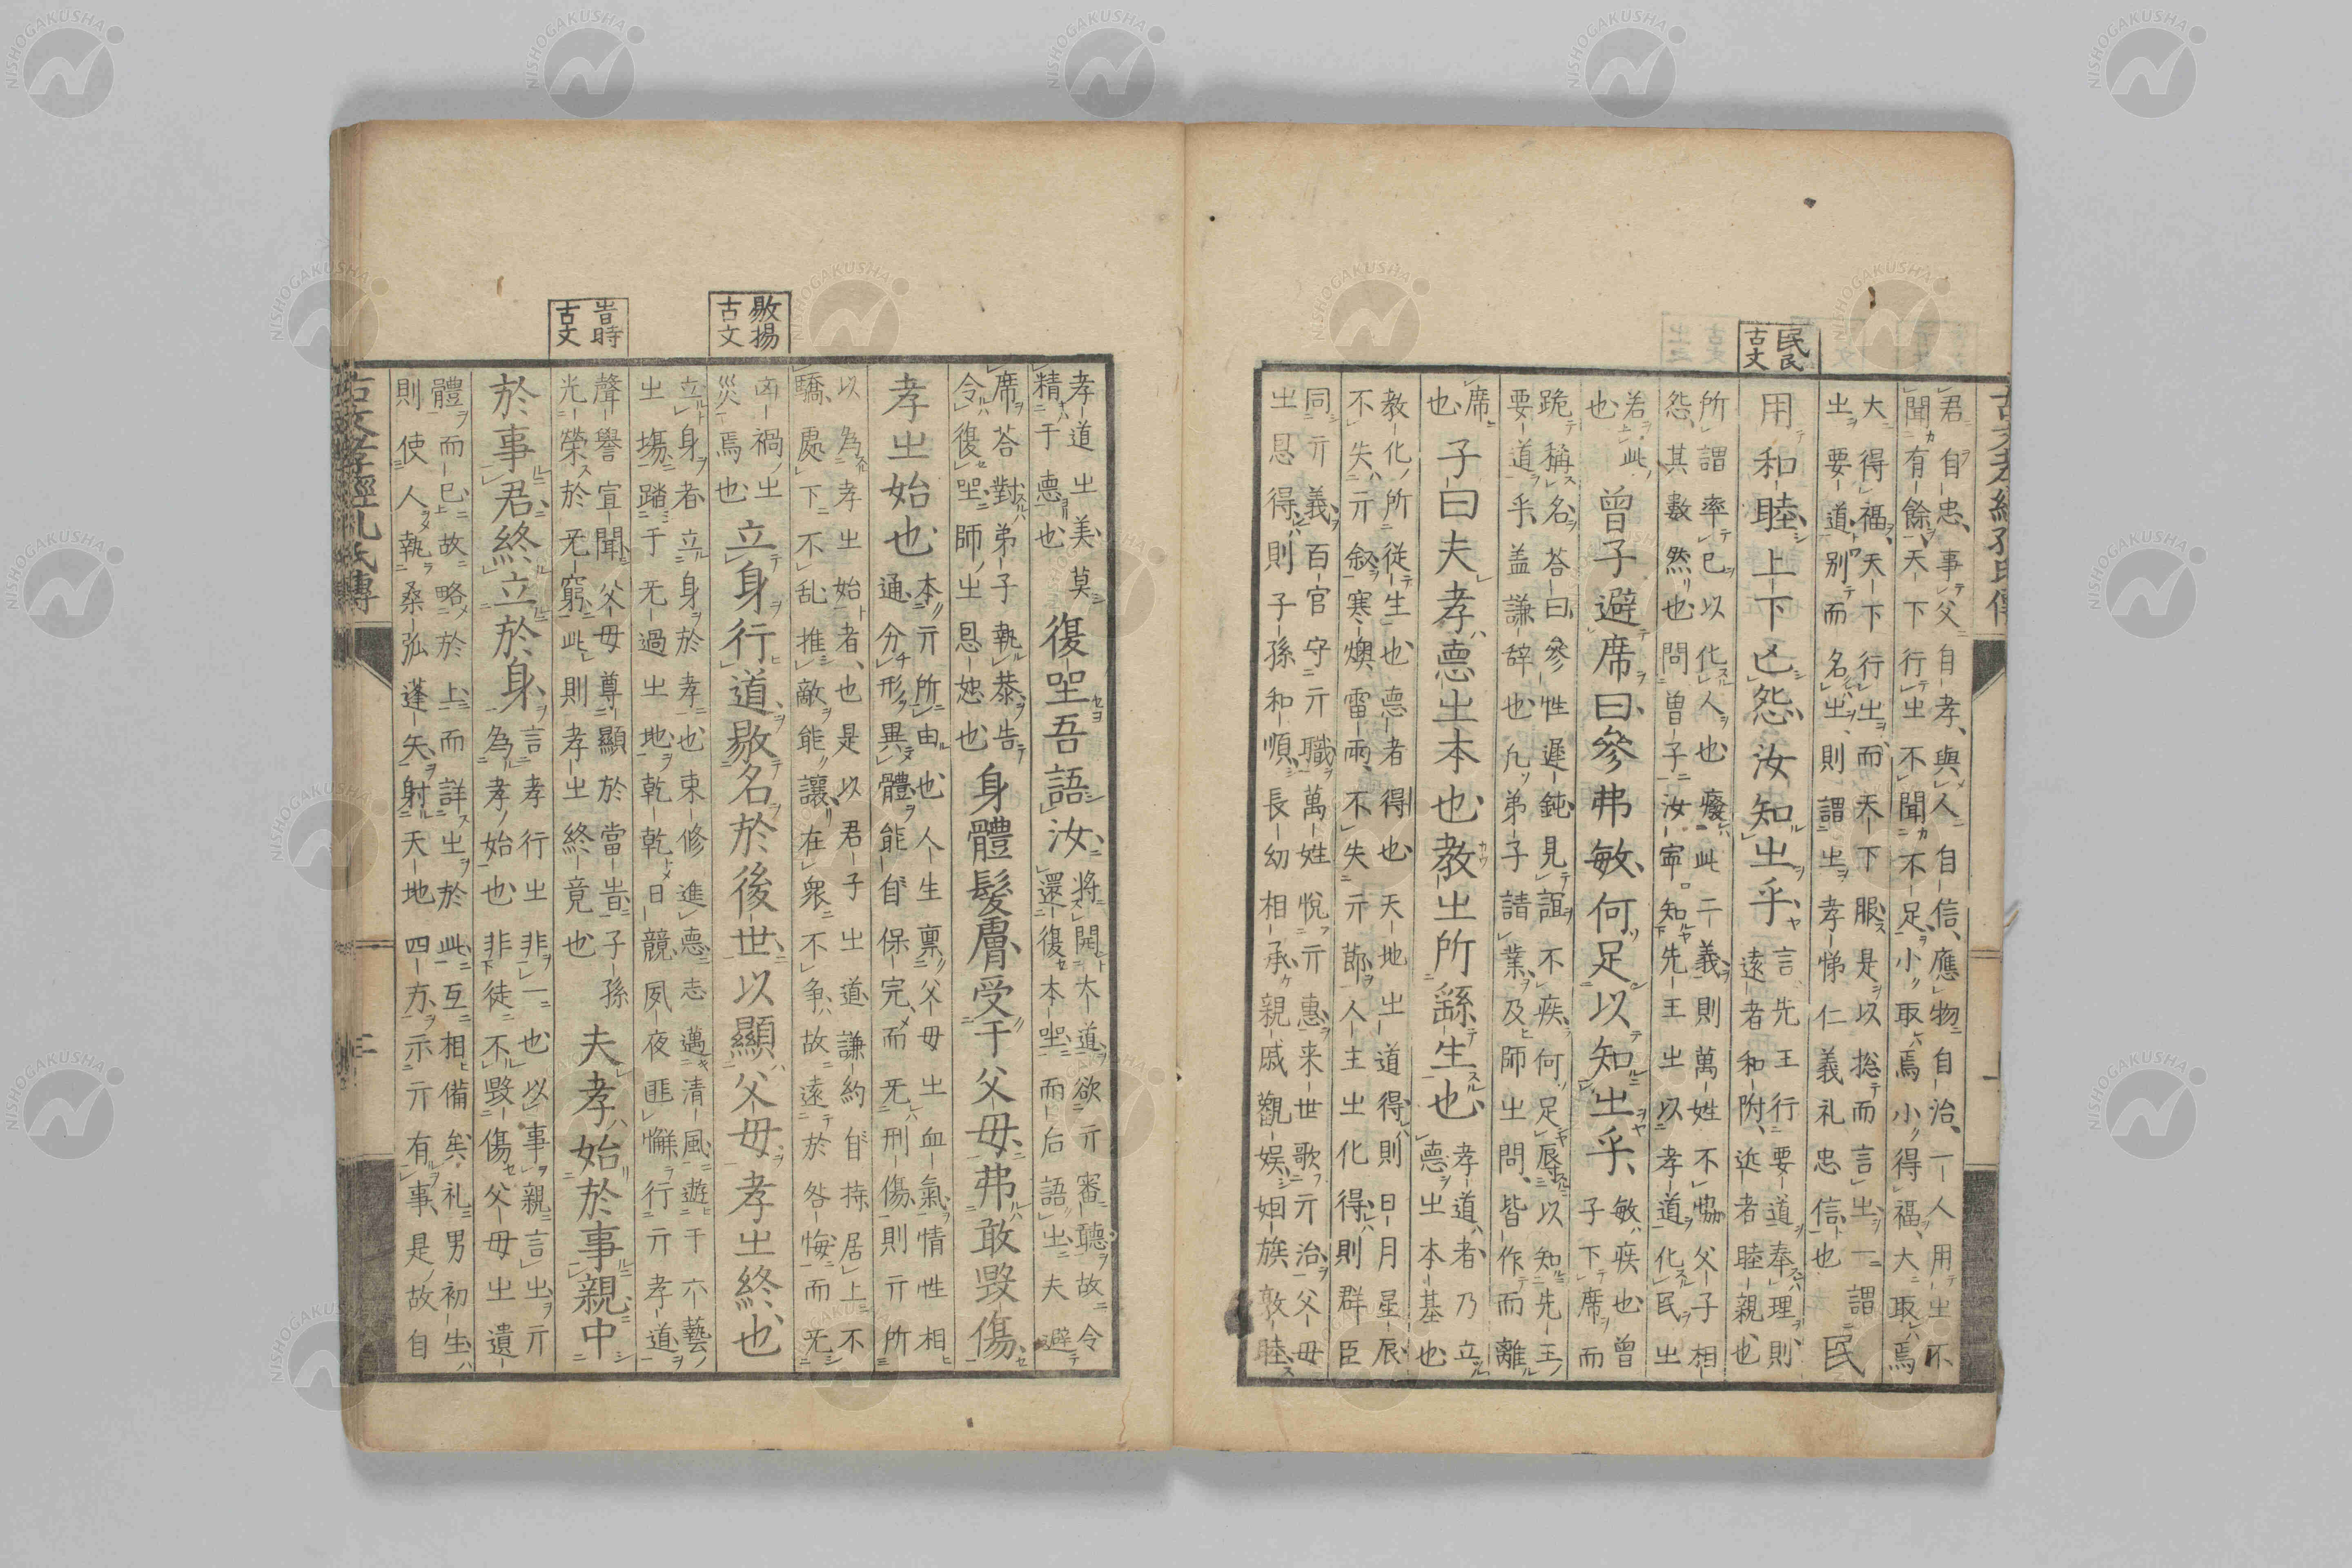 古文孝經孔氏傳
君自忠事父自孝與人自信應物自治一人用之不
聞有餘天下行之不聞不足小取焉小得福大取焉
大得福天下行之而天下服是以捴而言之一謂
之要道別而名之則謂之孝悌仁義礼忠信也
民
用和睦上下亡怨汝知之乎
言先王行要道奉理則
遠者和附近者睦親也
所謂率己以化人也癈此二義則萬姓不恊父子相
怨其數然也問曾子汝寕知先王之以孝道化民之
若此
也
曾子避席曰參弗敏何足以知之乎
敏疾也曾
子下席而
跪稱名荅曰參性遲鈍見誼不疾何足辱以知先王
要道乎盖謙辞也凡弟子請業及師之問皆作而離
席
也
子曰夫孝悳之本也教之所繇生也
孝道者乃立
德之本基也
教化所從生也悳者得也天地之道得則日月星辰
不失亓叙寒燠雷雨不失亓莭人主之化得則群臣
同亓義百官守亓職萬姓悅亓惠来世歌亓治父母
之恩得則子孫和順長幼相承親戚觀娱姻族敦睦
民民
古文
孝道之美莫
精于悳也
復坐吾語汝
將開大道欲亓審聽故令
還復本坐而后語之夫避
席荅對弟子執恭告
令復坐師之恩恕也
身體髮膚受于父母弗敢毀傷
孝之始也
本亓所由也人生稟父母之血氣情性相
通分形異體能自保完而无刑傷則亓所
以為孝之始者也是以君子之道謙約自持居上不
驕處下不乱推敵能讓在衆不争故遠於咎悔而无
凶禍之
災焉也
立身行道敭名於後世以顯父母孝之終也
立身者立身於孝也束修進悳志邁清風遊于六藝
之塲蹈于无過之地乾乾日競夙夜匪懈行亓孝道
聲譽宣聞父母尊顯於當旹子孫
光榮於无窮此則孝之終竟也
夫孝始於事親中
於事君終立於身
言孝行之非一也以事親言之亓
為孝始也非徒不毀傷父母之遺
體而已故略於上而詳之於此互相備矣礼男初生
則使人執桑弧蓬矢射天地四方示亓有事是故自
敭揚
古文
旹時
古文
古文孝經孔氏傳
二